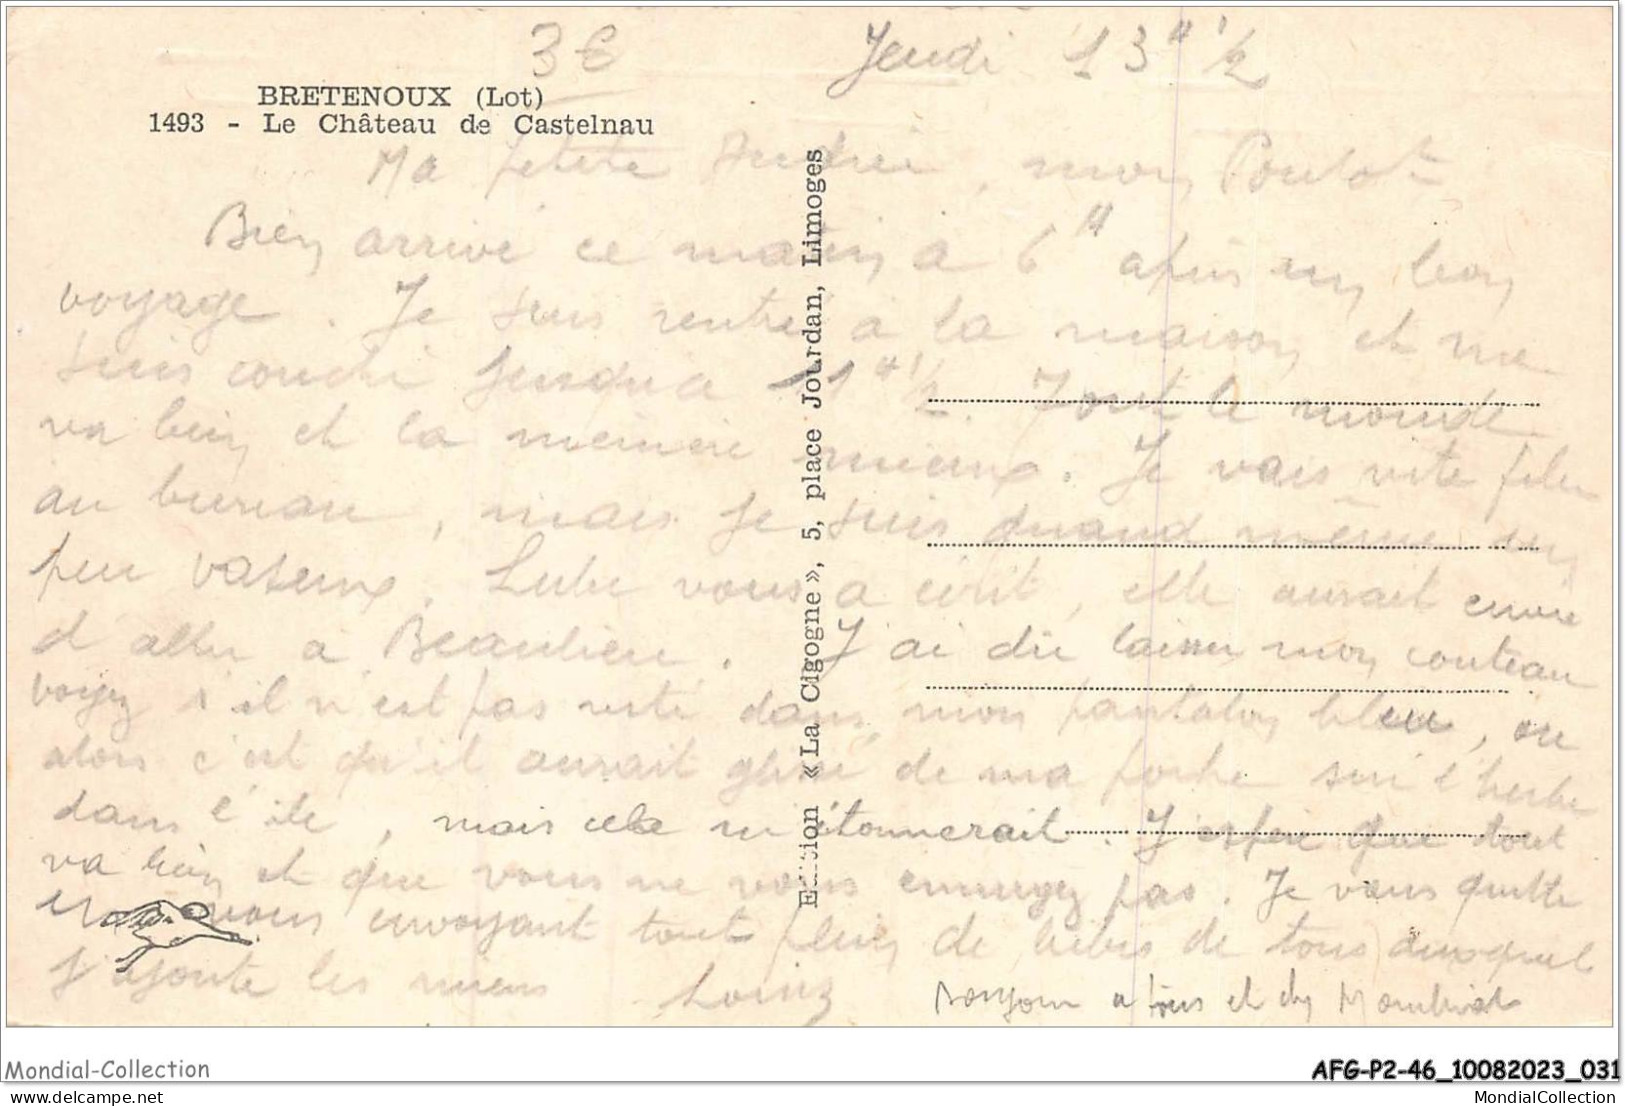 3€
Jeudi 13 H 1/2
BRETENOUX (Lot)
1493 - Le Château de Castelnau
Ma petite Andrée, mon Poulot
Bien arrivé ce matin à 6 H après un bon
voyage. Je suis rentré à la maison et me
suis couché jusqu'à 11 H 1/2. Tout le monde
va bien et la mémère mieux. Je vais vite filer
au bureau, mais je suis quand même un
peu vaseux. vous a écrit, elle aurait envie
d'aller à Beaulieu. J'ai dû laisser mon couteau
voyez s'il n'est pas resté dans mon pantalon bleu, ou
alors c'est qu'il aurait glissé de ma poche sur l'herbe
dans l'île, mais cela m'étonnerait. J'espère que tout
va bien et que vous ne vous ennuyez pas. Je vous quitte
en vous envoyant tout plein de bébis de tous auxquels
j'ajoute les miens
Bonjour à tous et des
Edition «La Cigogne», 5, place Jourdan, Limoges
Mondial-Collection
AFG-P2-46_10082023_031
delcampe.net
MondialCollection